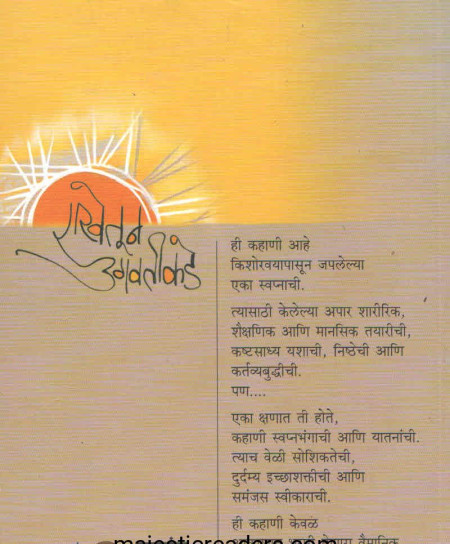 राखेतून
उगवतीकडे
ही कहाणी आहे
किशोरवयापासून जपलेल्या
एका स्वप्नाची.
त्यासाठी केलेल्या अपार शारीरिक,
शैक्षणिक आणि मानसिक तयारीची,
कष्टसाध्य यशाची, निष्ठेची आणि
कर्तव्यबुद्धीची.
पण....
एका क्षणात ती होते,
कहाणी स्वप्नभंगाची आणि यातनांची.
त्याच वेळी सोशिकतेची,
दुर्दम्य इच्छाशक्तीची आणि
समंजस स्वीकाराची.
ही कहाणी केवळ
वैमानिक
majesticreaders.com